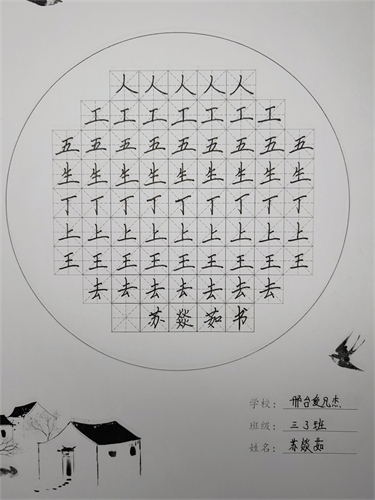 人人人人人
工工工工工工工
五五五五五五五五五
生生生生生生生生生
丁丁丁丁丁丁丁丁丁
上上上上上上上上上
王王王王王王王王王
去去去去去去去
苏燚茹书
学校：邢台爱凡杰
班级：三3班
姓名：苏燚茹